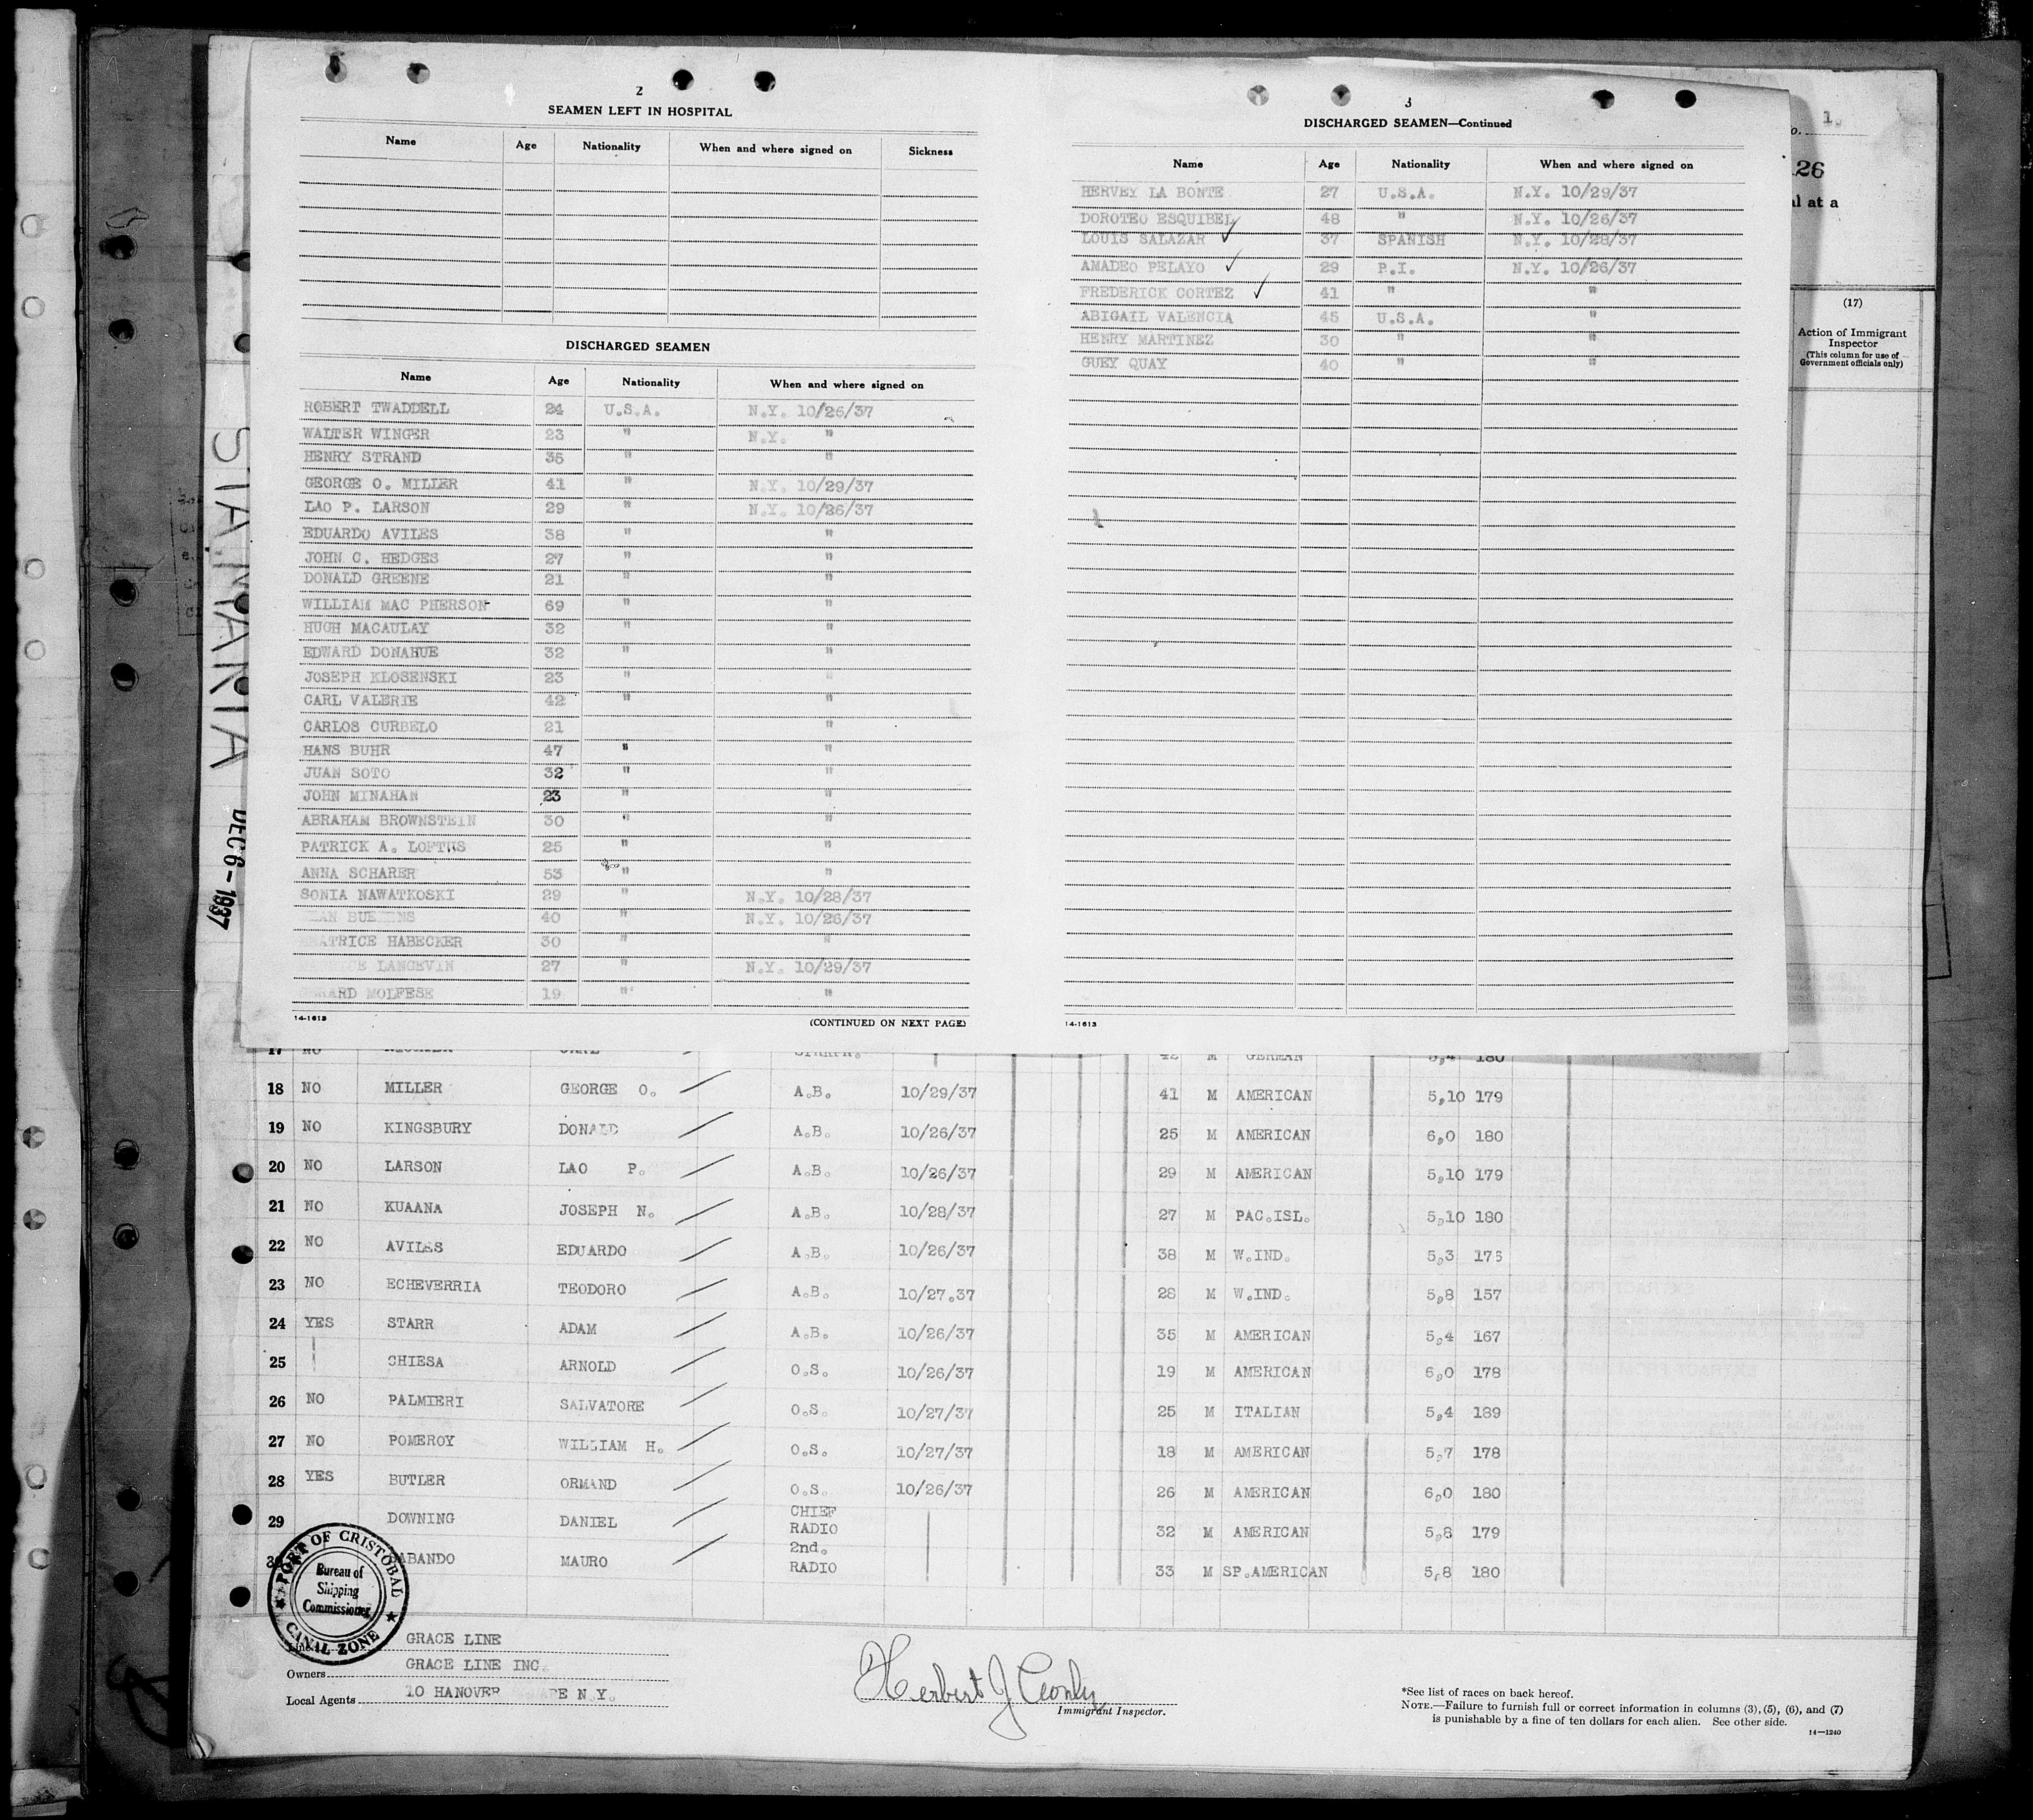 2
SEAMEN LEFT IN HOSPITAL
Name Age Nationality When and where signed on Sickness
DISCHARGED SEAMEN
Name Age Nationality When and where signed on
ROBERT TWADDELL 24 U.S.A. N.Y. 10/26/37
WALTER WINGER 23 " N.Y. "
HENRY STRAND 35 " "
GEORGE O. MILLER 41 " N.Y. 10/29/37
LAO P. LARSON 29 " N.Y. 10/26/37
EDUARDO AVILES 38 " "
JOHN C. HEDGES 27 " "
DONALD GREENE 21 " "
WILLIAM MAC PHERSON 69 " "
HUGH MACAULAY 32 " "
EDWARD DONAHUE 32 " "
JOSEPH KLOSENSKI 23 " "
CARL VALERIE 42 " "
CARLOS CURBELO 21 "
HANS BUHR 47 " "
JUAN SOTO 32 " "
JOHN MINAHAN 23 " "
ABRAHAM BROWNSTEIN 30 " "
PATRICK A. LOFTUS 25 " "
ANNA SCHARER 53 " "
SONIA NAWATKOSKI 29 " N.Y. 10/28/37
40 " N.Y. 10/26/37
HABECKER 30 " "
LANGEVIN 27 " N.Y. 10/29/37
MOLFESE 19 " "
14-1613 (CONTINUED ON NEXT PAGE)
3
DISCHARGED SEAMEN—Continued
Name Age Nationality When and where signed on
HERVEY LA BONTE 27 U.S.A. N.Y. 10/29/37
DOROTEO ESQUIBEL 48 " N.Y. 10/26/37
LOUIS SALAZAR ✓ 37 SPANISH N.Y. 10/28/37
AMADEO PELAYO ✓ 29 P.I. N.Y. 10/26/37
FREDERICK CORTEZ ✓ 41 " "
ABIGAIL VALENCIA 45 U.S.A. "
HENRY MARTINEZ 30 " "
GUEY QUAY 40 " "
14-1613
1
26
al at a
(17)
Action of Immigrant
Inspector
(This column for use of
Government officials only)
STA. MARIA
DEC 6 - 1937
17 NO 42 M GERMAN 5,4 180
18 NO MILLER GEORGE O. A.B. 10/29/37 41 M AMERICAN 5,10 179
19 NO KINGSBURY DONALD A.B. 10/26/37 25 M AMERICAN 6,0 180
20 NO LARSON LAO P. A.B. 10/26/37 29 M AMERICAN 5,10 179
21 NO KUAANA JOSEPH N. A.B. 10/28/37 27 M PAC.ISL. 5,10 180
22 NO AVILES EDUARDO A.B. 10/26/37 38 M W.IND. 5,3 175
23 NO ECHEVERRIA TEODORO A.B. 10/27.37 28 M W.IND. 5,8 157
24 YES STARR ADAM A.B. 10/26/37 35 M AMERICAN 5,4 167
25 CHIESA ARNOLD O.S. 10/26/37 19 M AMERICAN 6,0 178
26 NO PALMIERI SALVATORE O.S. 10/27/37 25 M ITALIAN 5,4 189
27 NO POMEROY WILLIAM H. O.S. 10/27/37 18 M AMERICAN 5,7 178
28 YES BUTLER ORMAND O.S. 10/26/37 26 M AMERICAN 6,0 180
29 DOWNING DANIEL CHIEF RADIO 32 M AMERICAN 5,8 179
30 MAURO 2nd. RADIO 33 M SP.AMERICAN 5,8 180
PORT OF CRISTOBAL
Bureau of
Shipping
Commissioner
CANAL ZONE
Line GRACE LINE
Owners GRACE LINE INC.
Local Agents 10 HANOVER N.Y.
Herbert J
Immigrant Inspector.
*See list of races on back hereof.
NOTE.—Failure to furnish full or correct information in columns (3), (5), (6), and (7)
is punishable by a fine of ten dollars for each alien. See other side.
14—1240